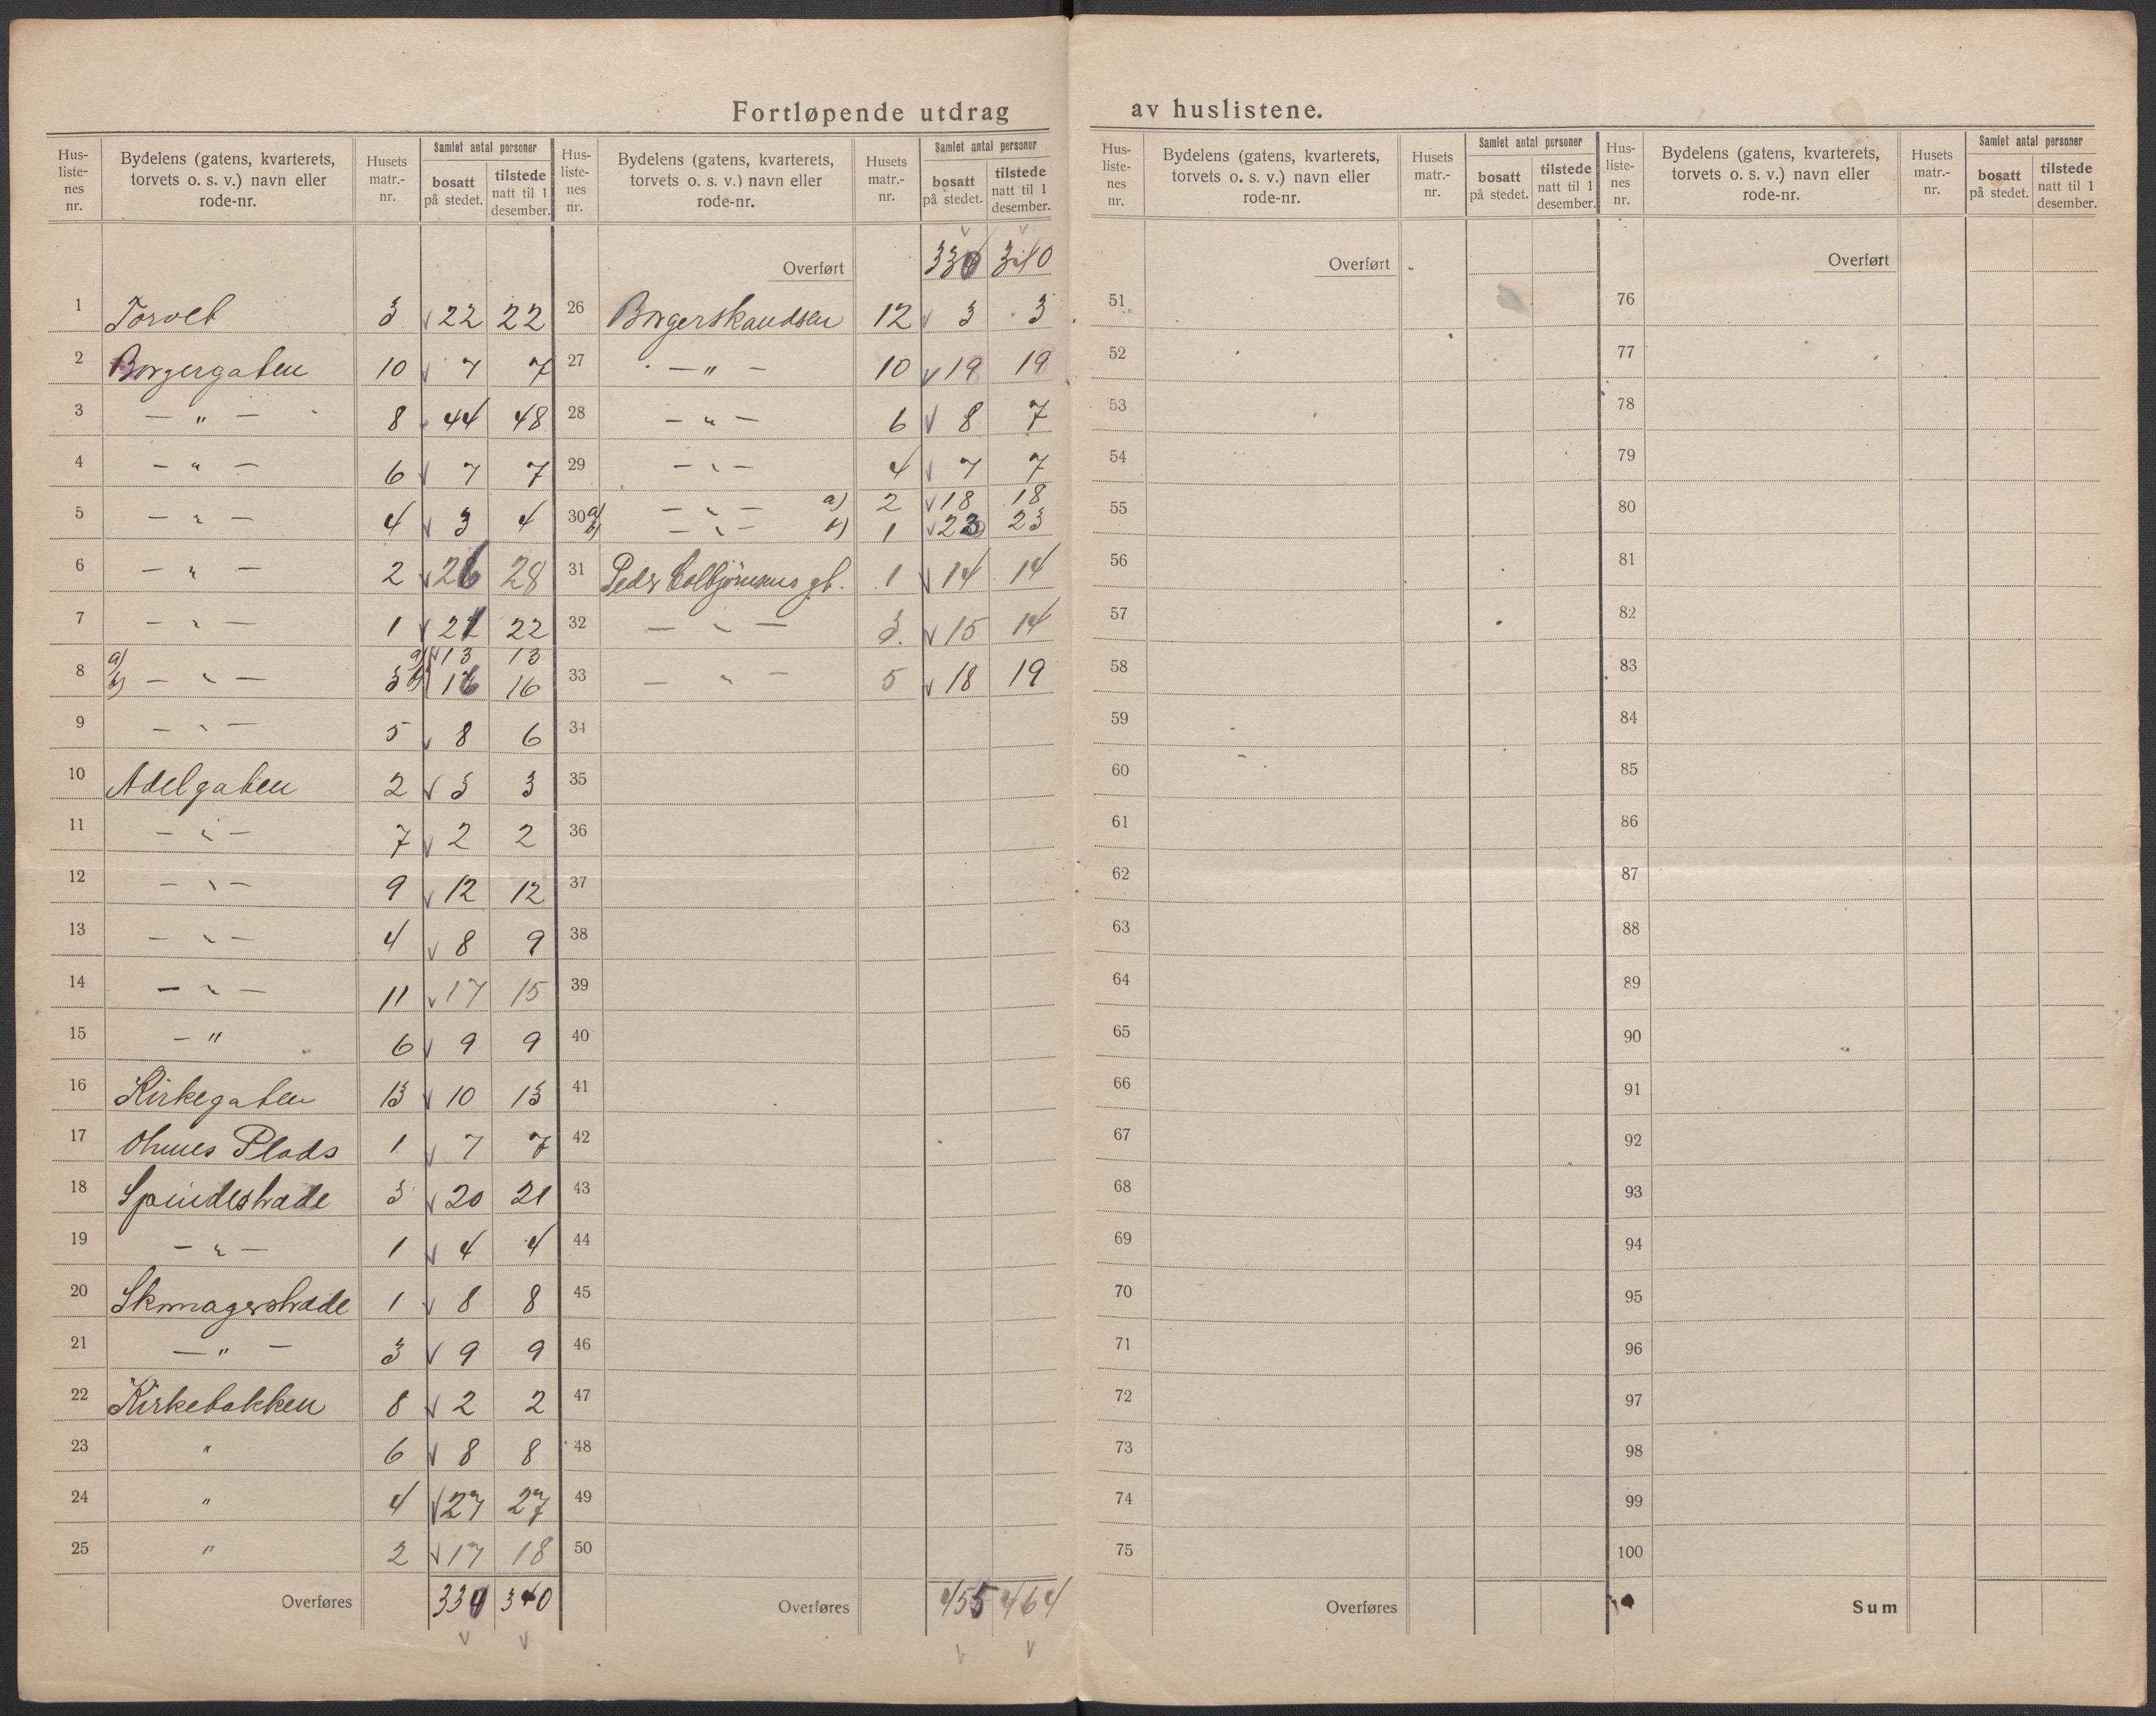 Fortløpende utdrag av huslistene.
Hus-liste-nes nr. Bydelens (gatens, kvarterets, torvets o. s. v.) navn eller rode-nr. Husets matr.-nr. Samlet antal personer bosatt på stedet. tilstede natt til 1 desember.
1 Torvet 3 22 22
2 Borgergaten 10 7 7
3 — " — 8 44 48
4 — " — 6 7 7
5 — " — 4 3 4
6 — " — 2 26 28
7 — " — 1 21 22
8 a) a) 13 13
b) — " — 3 b) 16 16
9 — " — 5 8 6
10 Adelgaten 2 3 3
11 — " — 7 2 2
12 — " — 9 12 12
13 — " — 4 8 9
14 — " — 11 17 15
15 — " 6 9 9
16 Kirkegaten 13 10 13
17 Ohmes Plads 1 7 7
18 Spindestræde 3 20 21
19 — " — 1 4 4
20 Skomagerstræde 1 8 8
21 — " — 3 9 9
22 Kirkebakken 8 2 2
23 " 6 8 8
24 " 4 27 27
25 " 2 17 18
Overføres 330 340
Hus-liste-nes nr. Bydelens (gatens, kvarterets, torvets o. s. v.) navn eller rode-nr. Husets matr.-nr. Samlet antal personer bosatt på stedet. tilstede natt til 1 desember.
Overført 330 340
26 Borgerskandsen 12 3 3
27 — " — 10 19 19
28 — " — 6 8 7
29 — " — 4 7 7
30 a) — " — a) 2 18 18
b) — " — b) 1 23 23
31 Peder Colbjørnsens gt. 1 14 14
32 — " — 3. 15 14
33 — " — 5 18 19
34
35
36
37
38
39
40
41
42
43
44
45
46
47
48
49
50
Overføres 455 464
Hus-liste-nes nr. Bydelens (gatens, kvarterets, torvets o. s. v.) navn eller rode-nr. Husets matr.-nr. Samlet antal personer bosatt på stedet. tilstede natt til 1 desember.
Overført
51
52
53
54
55
56
57
58
59
60
61
62
63
64
65
66
67
68
69
70
71
72
73
74
75
Overføres
Hus-liste-nes nr. Bydelens (gatens, kvarterets, torvets o. s. v.) navn eller rode-nr. Husets matr.-nr. Samlet antal personer bosatt på stedet. tilstede natt til 1 desember.
Overført
76
77
78
79
80
81
82
83
84
85
86
87
88
89
90
91
92
93
94
95
96
97
98
99
100
Sum